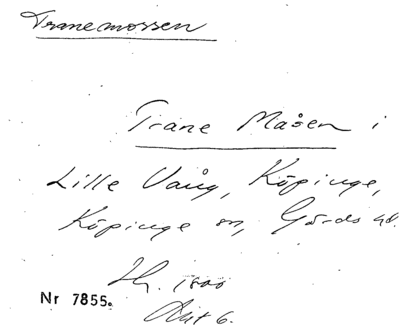 Tranemossen
Trane Maåsen i
Lille Vång, Köpinge,
Köpinge sn, Gärds hd.
1800
Nr 7855.
Akt 6.